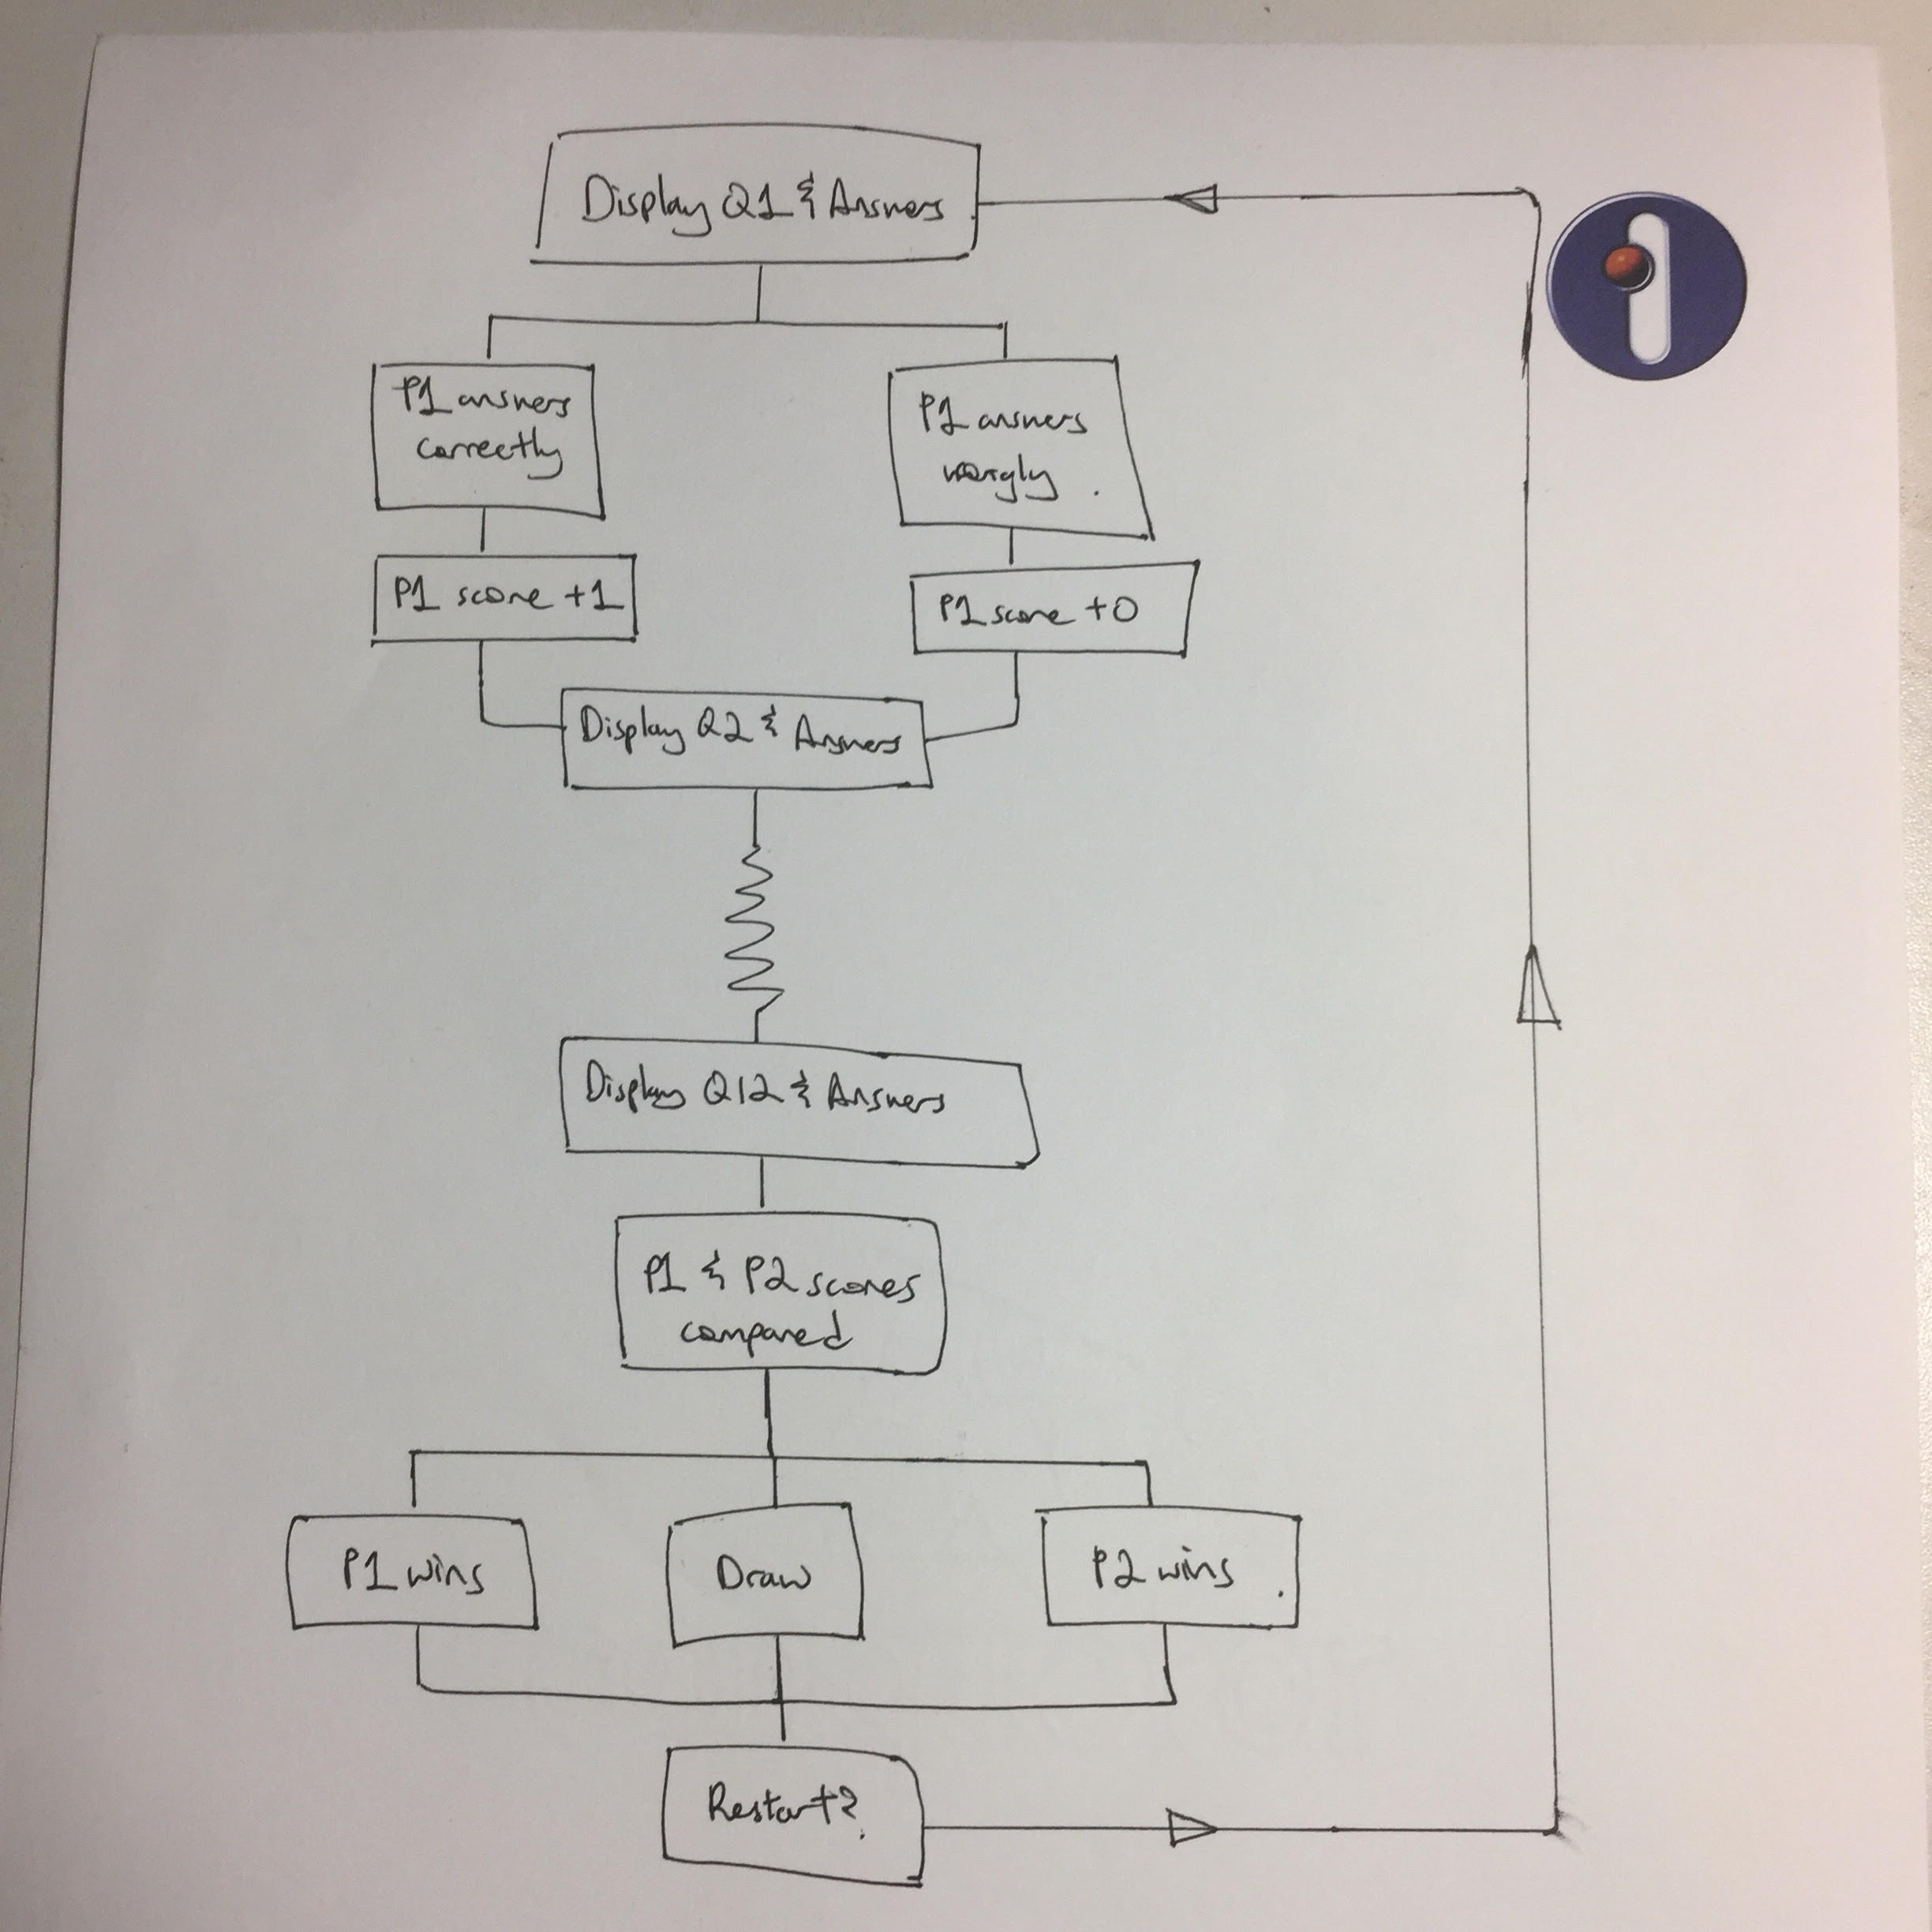 Display Q1 & Answers
P1 answers
correctly
P1 answers
worngly.
P1 score +1
P1 score +0
Display Q2 & Answers
Display Q12 & Answers
P1 & P2 scores
compared
P1 wins
Draw
P2 wins.
Restart?